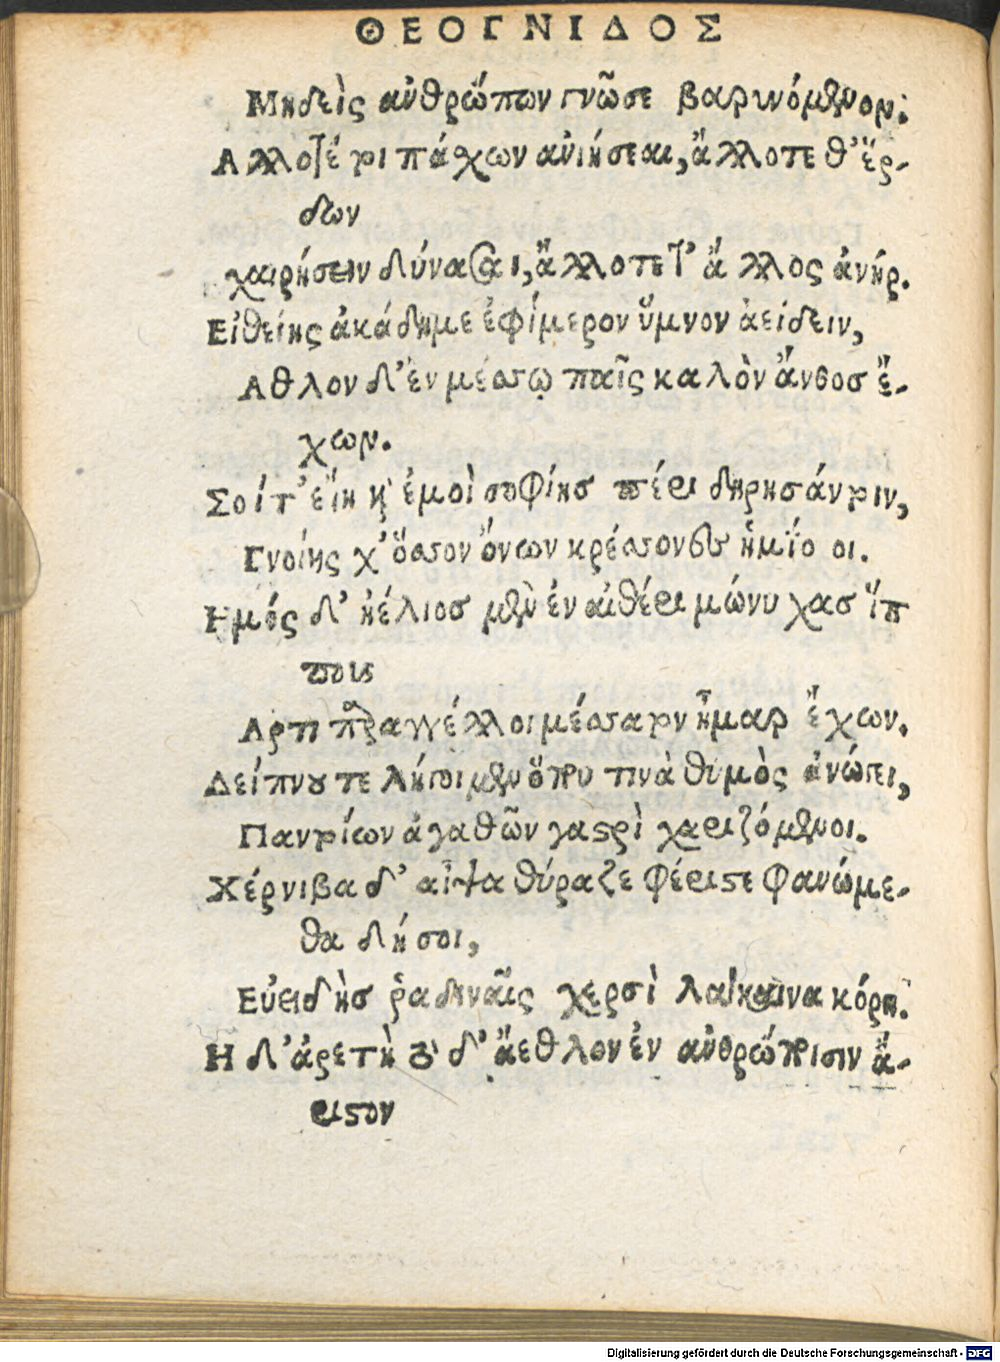 ΘΕΟΓΝΙΔΟΣ
Μηδεὶς ἀνθρώπων γνῶσε βαρυνόμενον.
Αλλοτέ τι πάχων ἀνιήσεαι, ἄλλοτε θ' ἔρ-
δων
χαιρήσειν δύναται, ἄλλοτε τ' ἄλλος ἀνήρ.
Εἰθείης ἀκάδημε ἐφίμερον ὕμνον ἀείδειν,
Αθλον δ' ἐν μέσσῳ παῖς καλὸν ἄνθοσ ἔ-
χων.
Σοί τ' εἴη κὶ ἐμοὶ σοφίησ πέρι δηρησάντιν,
Γνοίης χ' ὅσσον ὄνων κρέσσονες ἡμίονοι.
Ημός δ' ἠέλιοσ μὲν ἐν αἰθέρι μώνυχασ ἵπ
ποις
Αρτι παραγγέλλοι μέσσατον ἦμαρ ἔχων.
Δείπνου τε λήγοι μεν ὅπου τινὰ θυμὸς ἀνώγει,
Παντοίων ἀγαθῶν γαστρὶ χαριζόμενοι.
Χέρνιβα δ' αἶψα θύραζε φέροι στε φανώμε-
θα δ' ἥσοι,
Εὐειδὴσ ῥαδιναῖς χερσὶ λάκαινα κόρη.
Η δ' ἀρετὴ τὸ δ' ἄεθλον ἐν ἀνθρώποισιν ἄ-
ριστον
Digitalisierung gefördert durch die Deutsche Forschungsgemeinschaft - DFG